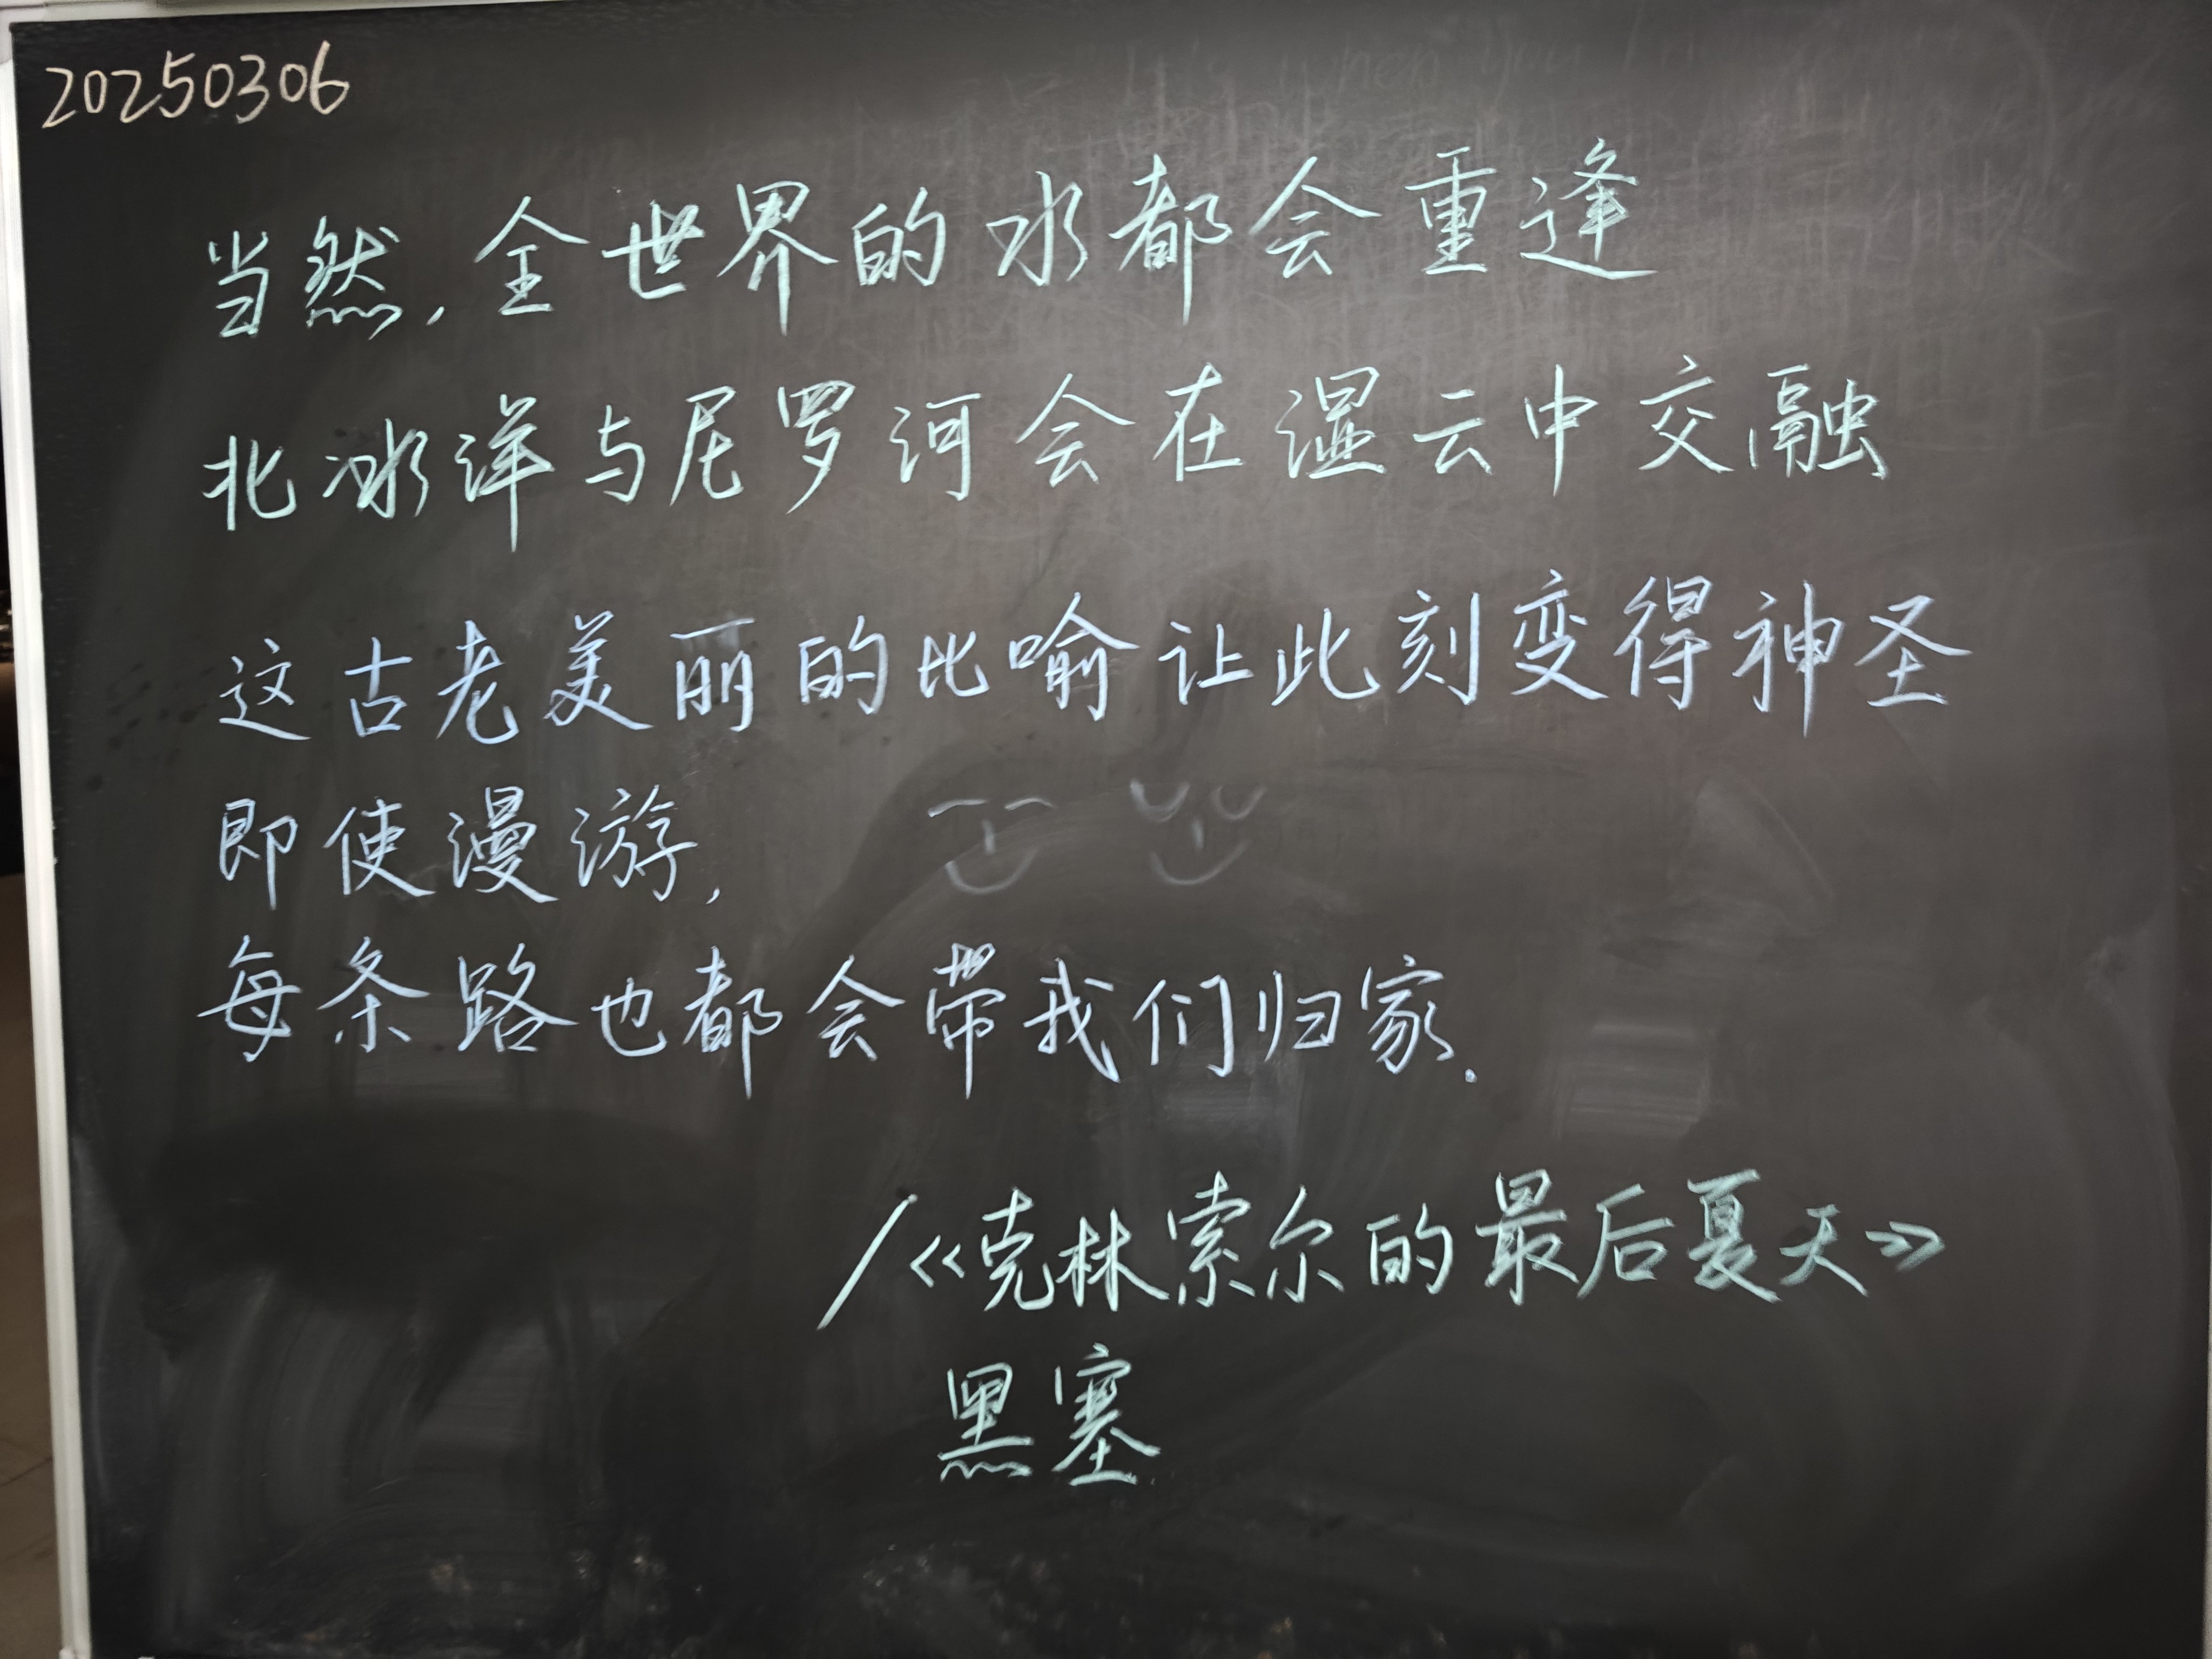 20250306
当然,全世界的水都会重逢
北冰洋与尼罗河会在湿云中交融
这古老美丽的比喻让此刻变得神圣
即使漫游,
每条路也都会带我们归家.
/《克林索尔的最后夏天》
黑塞